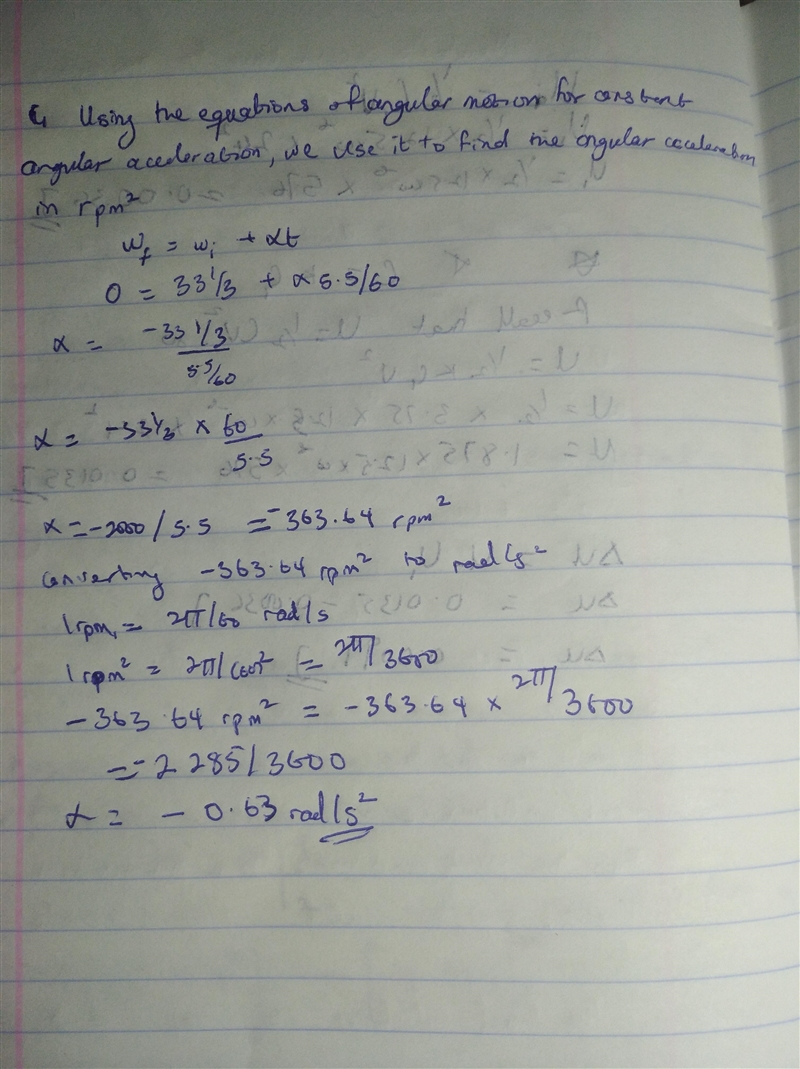 Using the equations of angular motion for constant
angular acceleration, we use it to find the angular acceleration
in rpm²
ω_f = ω_i + αt
0 = 33 1/3 + α 5.5/60
α = -33 1/3
5.5/60
α = -33 1/3 × 60
5.5
α = -2000 / 5.5 = -363.64 rpm²
Converting -363.64 rpm² to rad/s²
1 rpm = 2π/60 rad/s
1 rpm² = 2π/60² = 2π/3600
-363.64 rpm² = -363.64 × 2π/3600
= -2285/3600
α = - 0.63 rad/s²